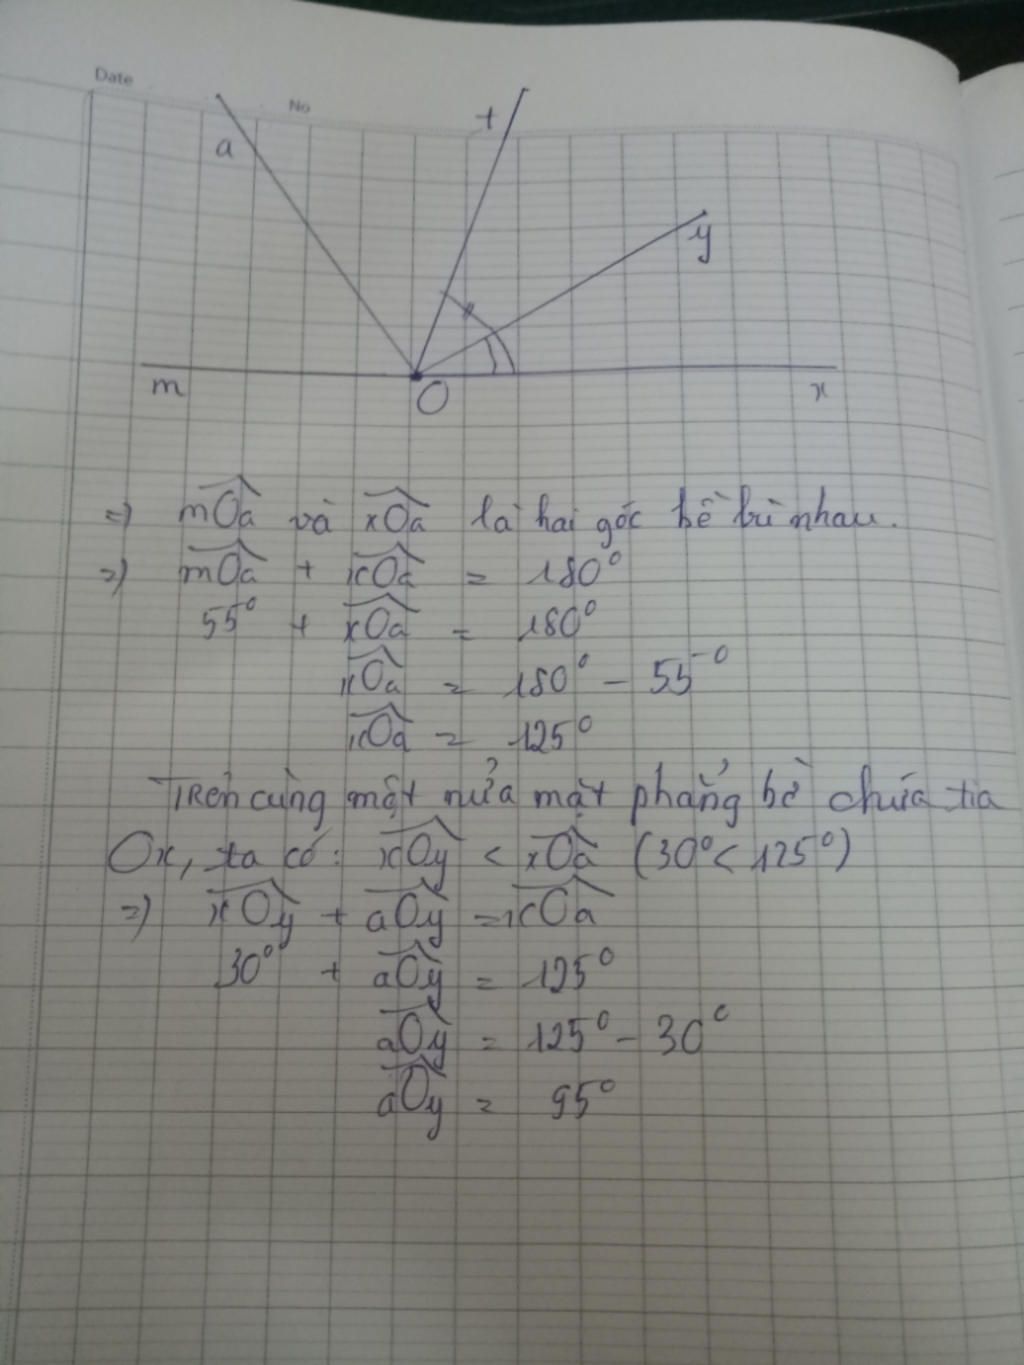 Date
No
a
t
y
m
O
x
=) mÔa và xÔa là hai góc kề bù nhau.
=) mÔa + xÔa = 180°
55° + xÔa = 180°
xÔa = 180° - 55°
xÔa = 125°
Trên cùng một nửa mặt phẳng bờ chứa tia
Ox, ta có: xÔy < xÔa (30° < 125°)
=) xÔy + aÔy = xÔa
30° + aÔy = 125°
aÔy = 125° - 30°
aÔy = 95°